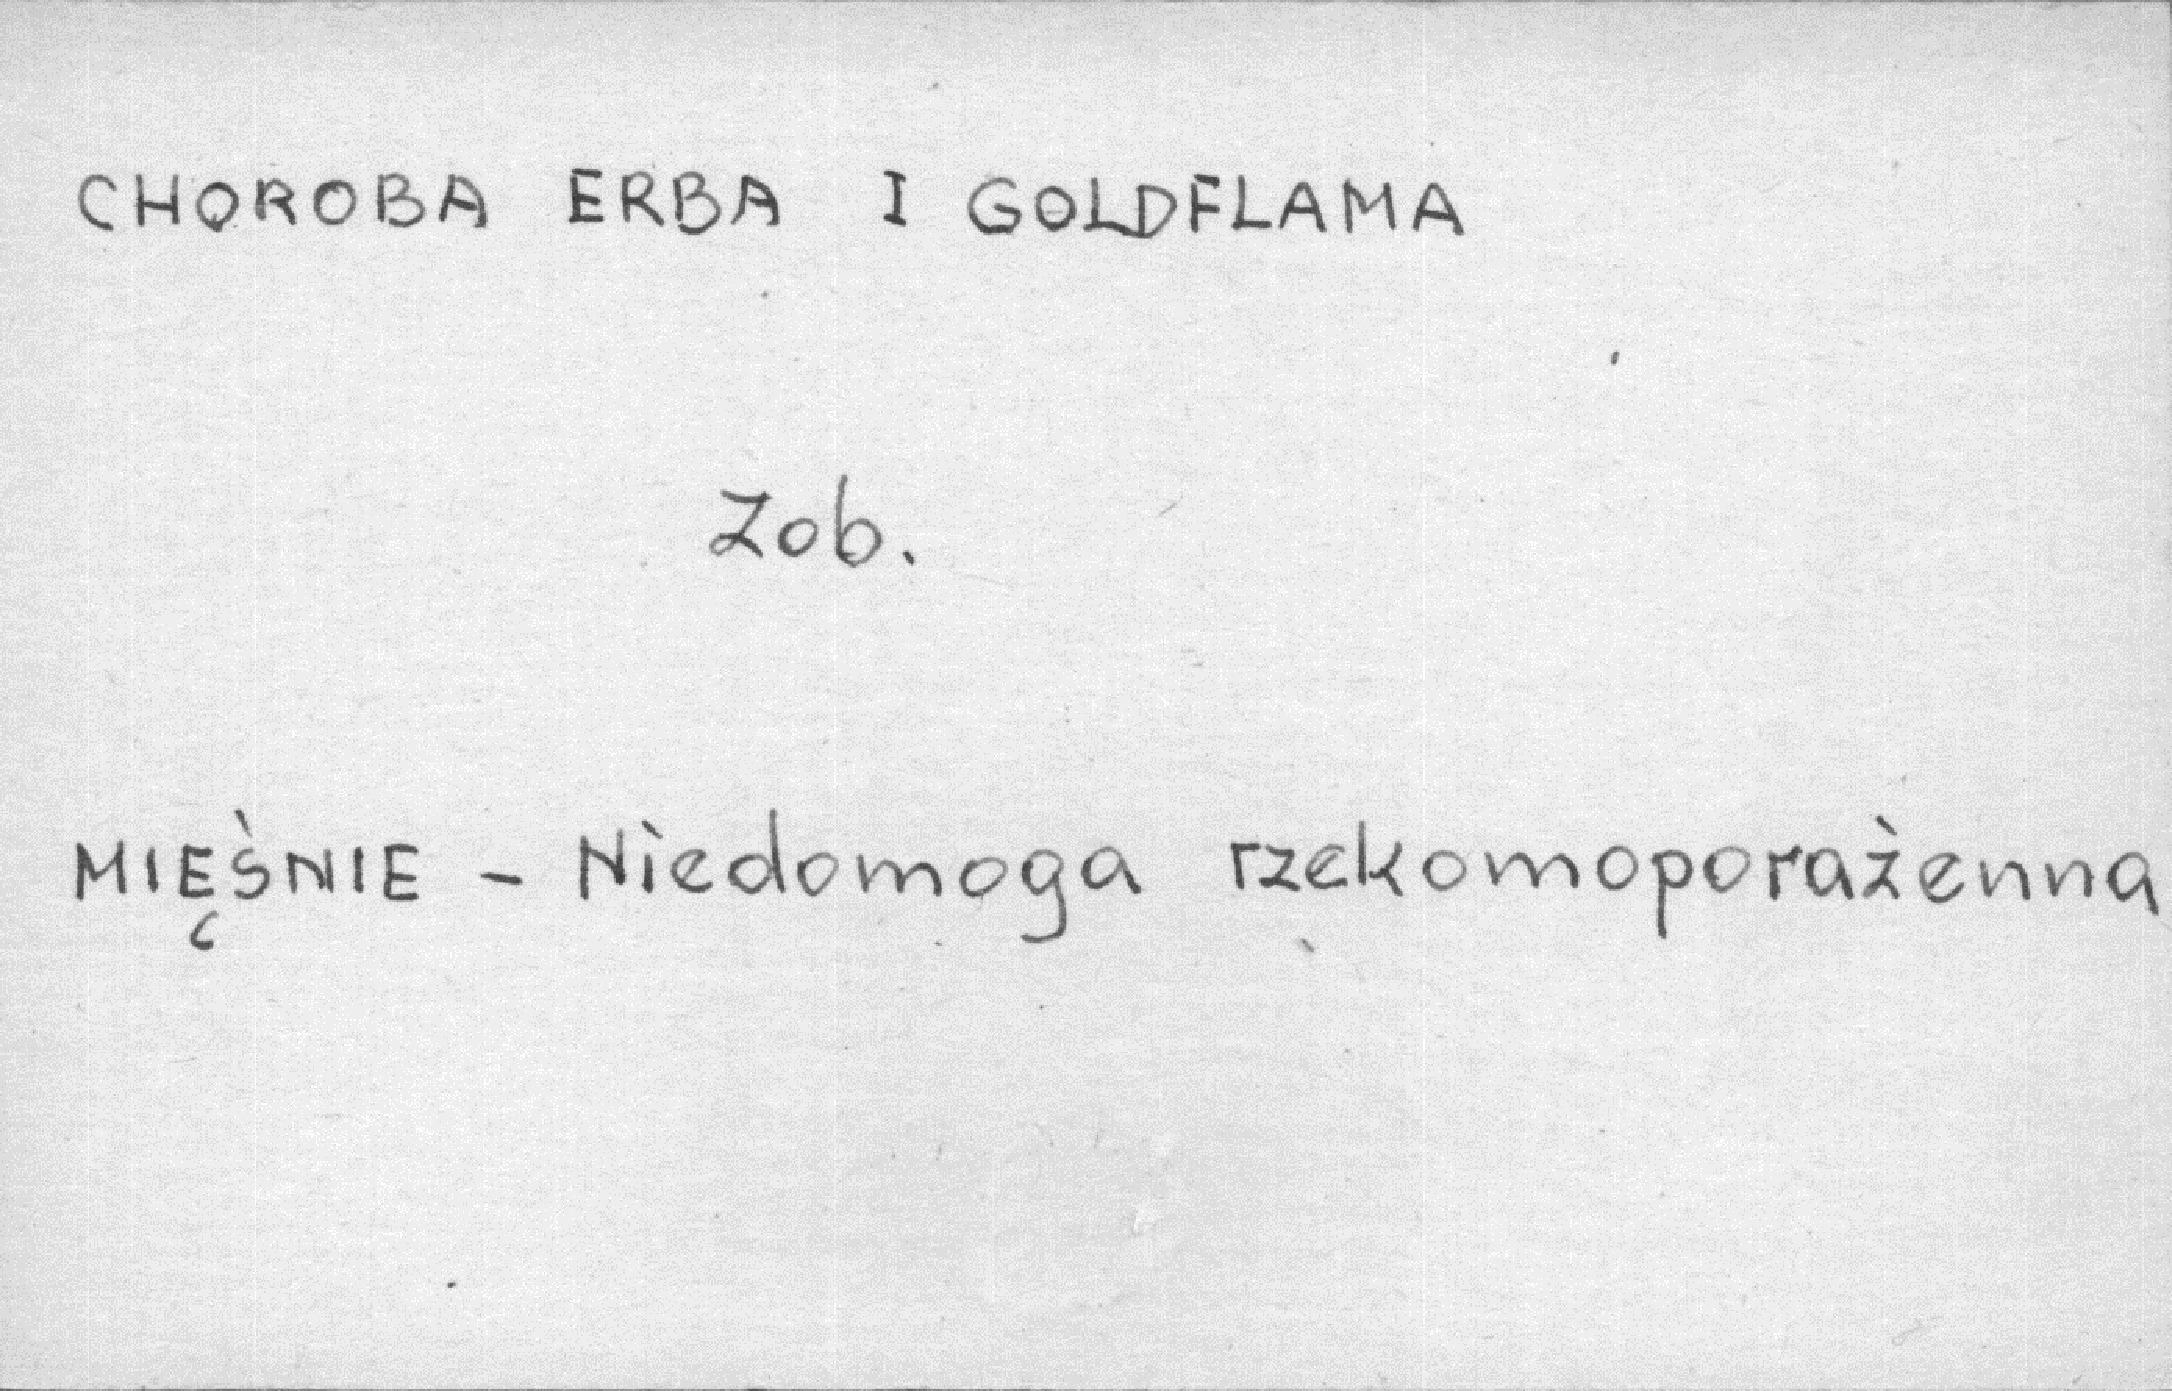 CHOROBA ERBA I GOLDFLAMA
Zob.
MIĘŚNIE - Niedomoga rzekomoporażenna